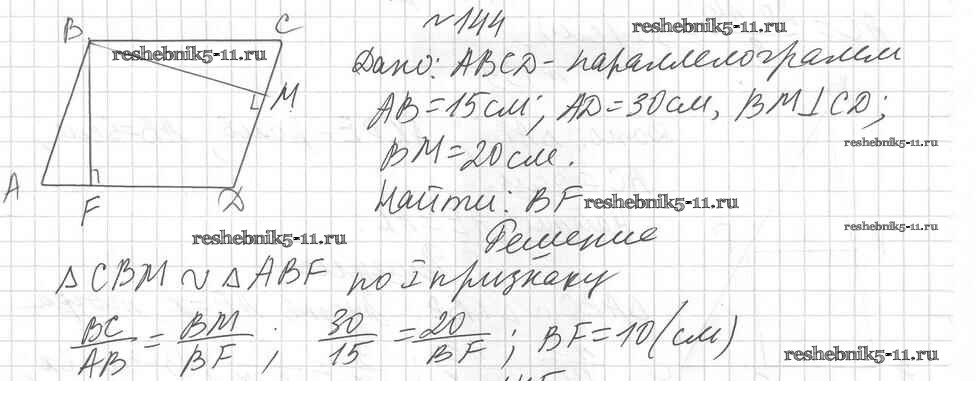 №144
B C reshebnik5-11.ru
reshebnik5-11.ru
Дано: ABCD - параллелограмм
AB = 15 см; AD = 30 см, BM ⊥ CD;
M
reshebnik5-11.ru
BM = 20 см.
A F D
Найти: BF reshebnik5-11.ru
reshebnik5-11.ru
reshebnik5-11.ru
Решение
△CBM ~ △ABF по I признаку
BC/AB = BM/BF; 30/15 = 20/BF; BF = 10 (см)
reshebnik5-11.ru